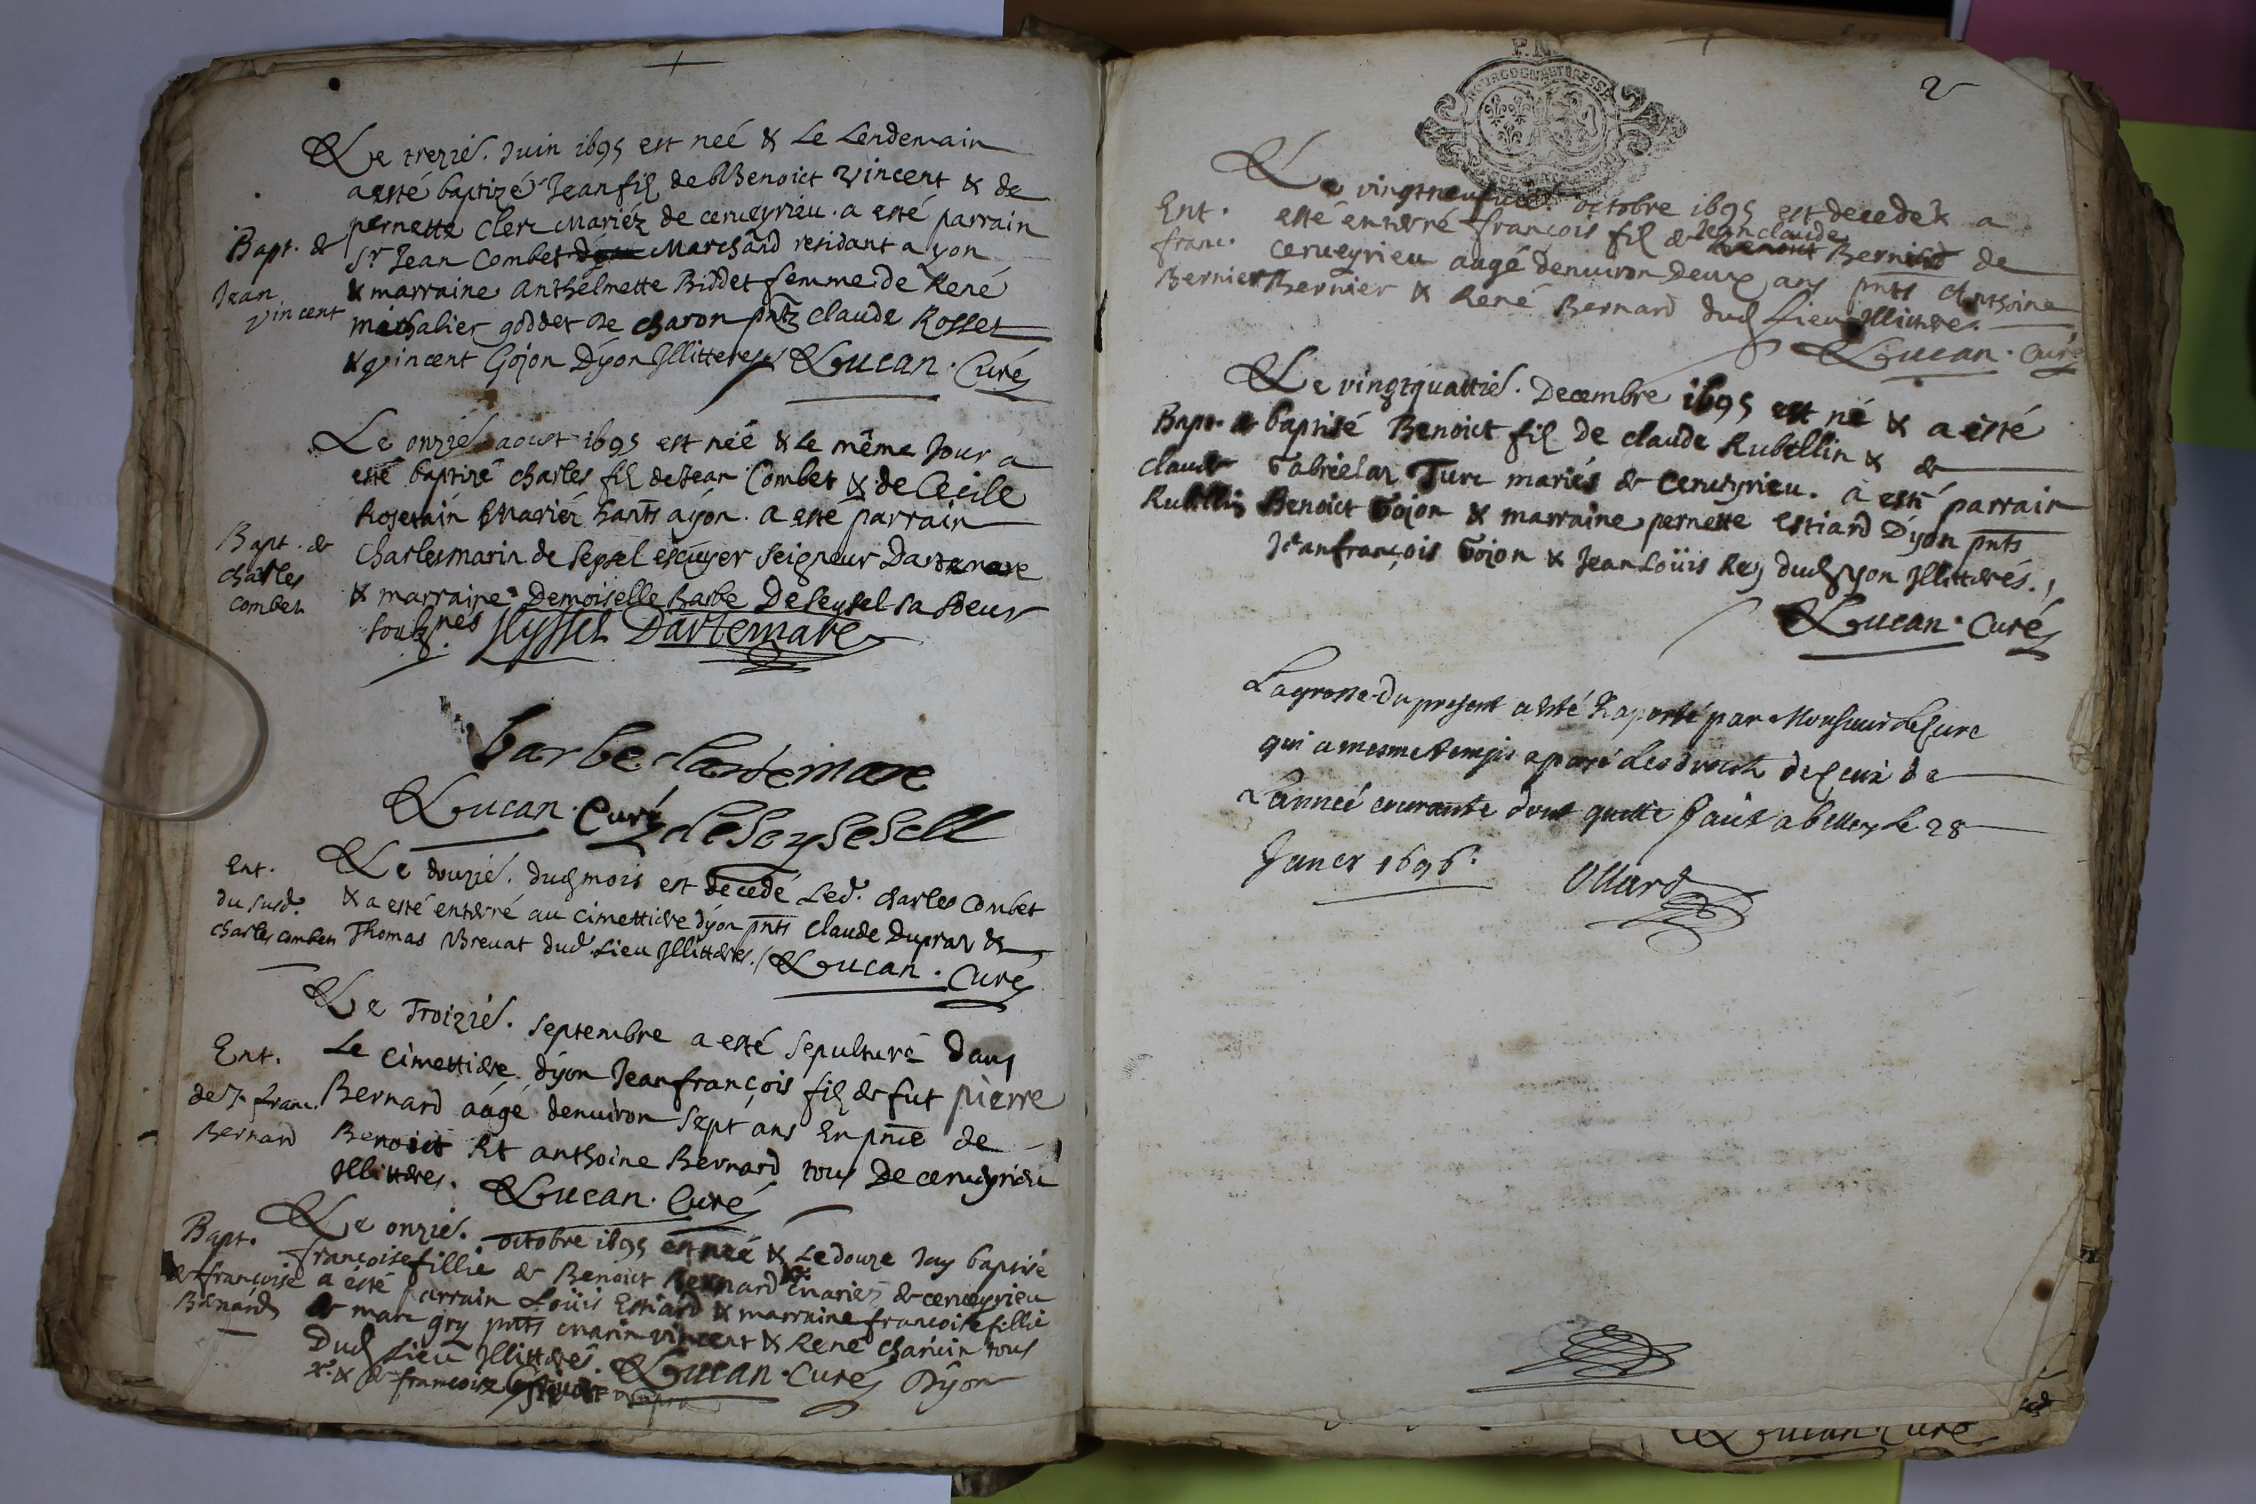 Le treziē. Juin 1695 est neé & Le Lendemain
a esté baptizé Jean fil de Benoict Vincent & de
pernette Clerc Mariéz de cerueyrieu. a esté parrain
Sr. Jean Combet Marchand residant a yon
& marraine Anthelmette Biddet femme de René
michalier goddet de charon pntz Claude Rosset
& vincent Gojon Dÿon Jllitteres Lucan. Curé
Bapt. de
Jean
vincent
Le onziē aoust 1695 est neé & le même Jour a
esté baptizé Charles fil de Jean Combet & de Cecile
Rosetain Mariéz hants a ÿon. a esté parrain
Charles marin de Seyssel escuyer Seigneur Dartemare
& marraine Demoiselle Barbe De Seyssel sa soeur
soubnes Seyssel Dartemare
Bapt. de
charles
combet
barbe dartemare
Lucan. Curé de Seysesell
Le douziē. dud mois est decedé Led. charles Combet
& a esté enterré au cimettiere dÿon pnts Claude Dupraz &
Thomas Breuat dud. Lieu Jllitteres. Lucan. Curé
Ent.
du susd.
charles combet
Le Troiziē. septembre a esté sepulturé dans
Le cimettiere dÿon Jean françois fil de fut pierre
Bernard aâgé denuiron sept ans En pnce de
Benoict Et anthoine Bernard tous De cerueyrieu
Jllitteres. Lucan. Curé
Ent.
de J. franc.
Bernard
Le onziē. octobre 1695 est neé & Le douze Jay baptisé
françoise fillie de Benoict Bernard mariés de cerueyrieu
a esté parrain Loüis Estiard & marraine francoise fillie
de marc gry pnts marin vincent & René charuin tous
Dud Lieu Jllitterés. Lucan. Curé Dÿon
& de francoise
Bapt.
de françoise
Bernard
2
Le vingtneufuiē octobre 1695 est decedé & a
esté enterré françois fil de Jean claude Bernier de
cerueyrieu aagé denuiron Deux ans pnts Anthoine
Bernier & René Bernard dud Lieu Jllitteres.
Lucan. Curé
Ent.
franc.
Bernier
Le vingtquattriē. Decembre 1695 est né & a esté
baptisé Benoict fil de claude Rubellin & de
Gabrielaz Turc mariés de Cerueyrieu. a esté parrain
Benoict Gojon & marraine pernette Estiard Dÿon pnts
Jean françois Gojon & Jean Loüis Rey dud yon Jllitterés.
Lucan. Curé
Bapt. de
claude
Rubellin
La grosse du present a esté Raporté par Monsieur le Cure
qui a mesme temps a payé Les droicts de Ceux de
Lanneé courante dont quitte faict a belley le 28
Janer 1696.
Ollard
Lucan Curé